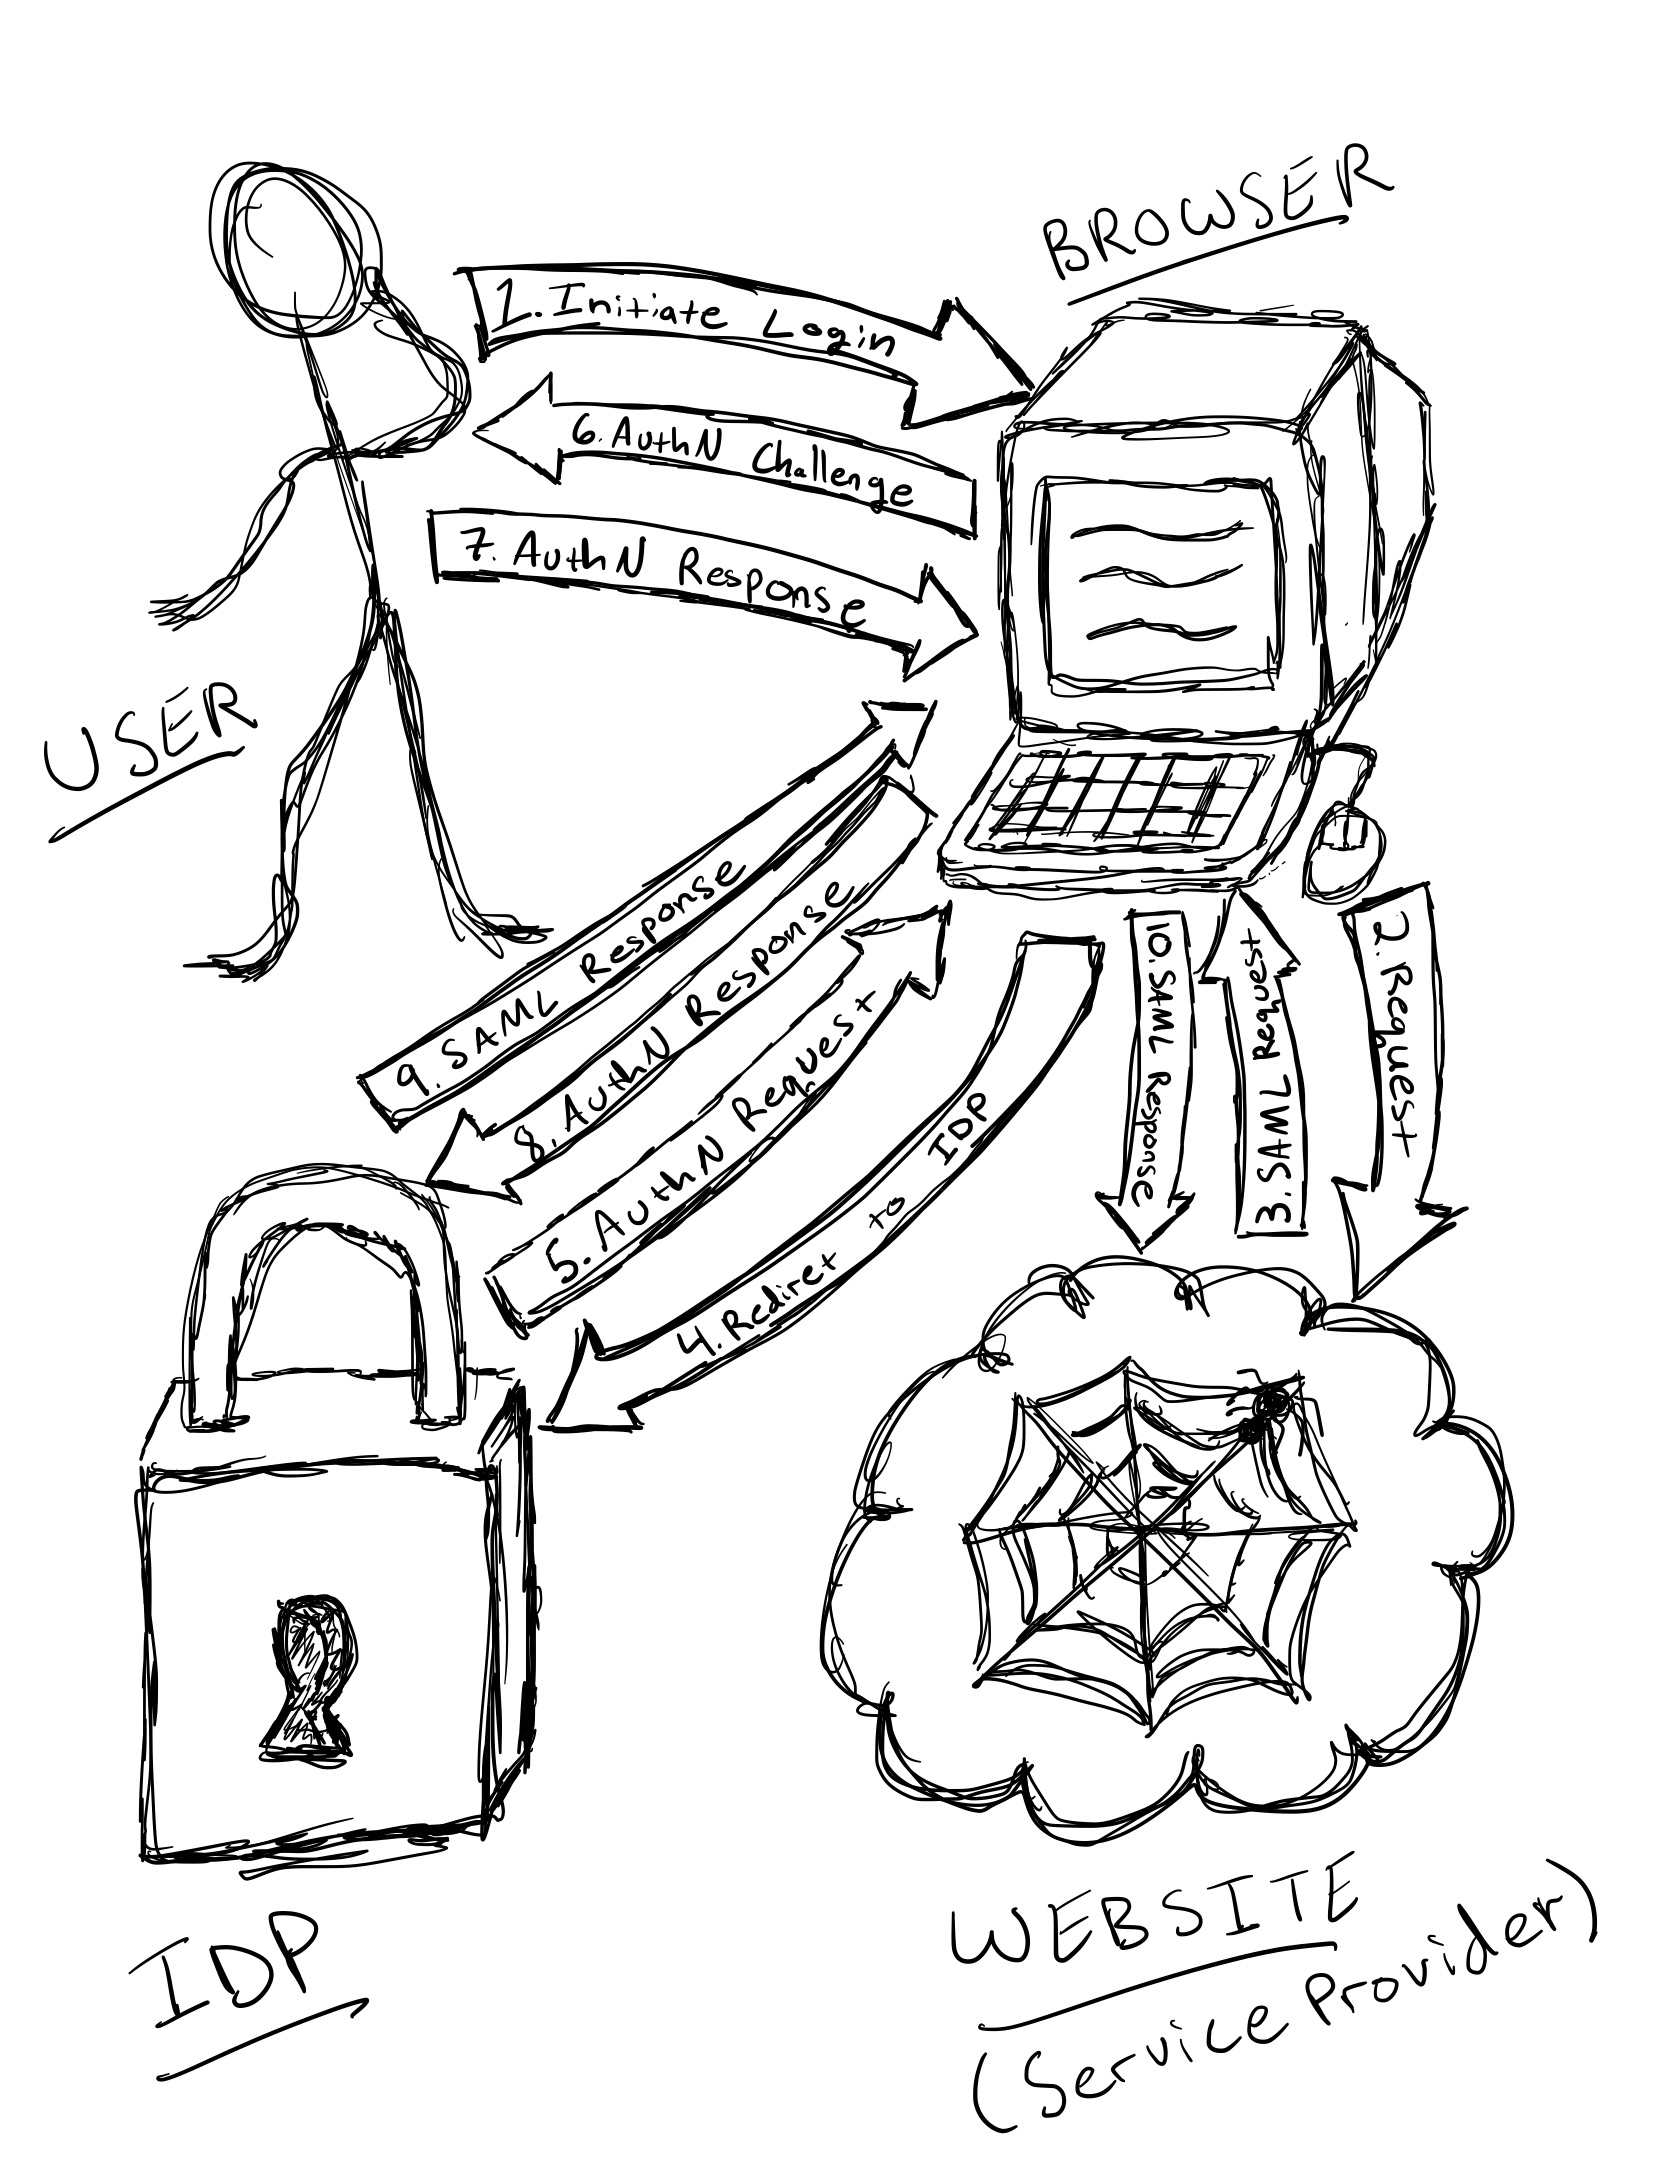 BROWSER
1. Initiate Login
6. AuthN Challenge
7. AuthN Response
USER
9. SAML Response
8. AuthN Response
5. AuthN Request
4. Rediret to IDP
10. SAML Response
3. SAML Request
2. Request
IDP
WEBSITE
(Service Provider)